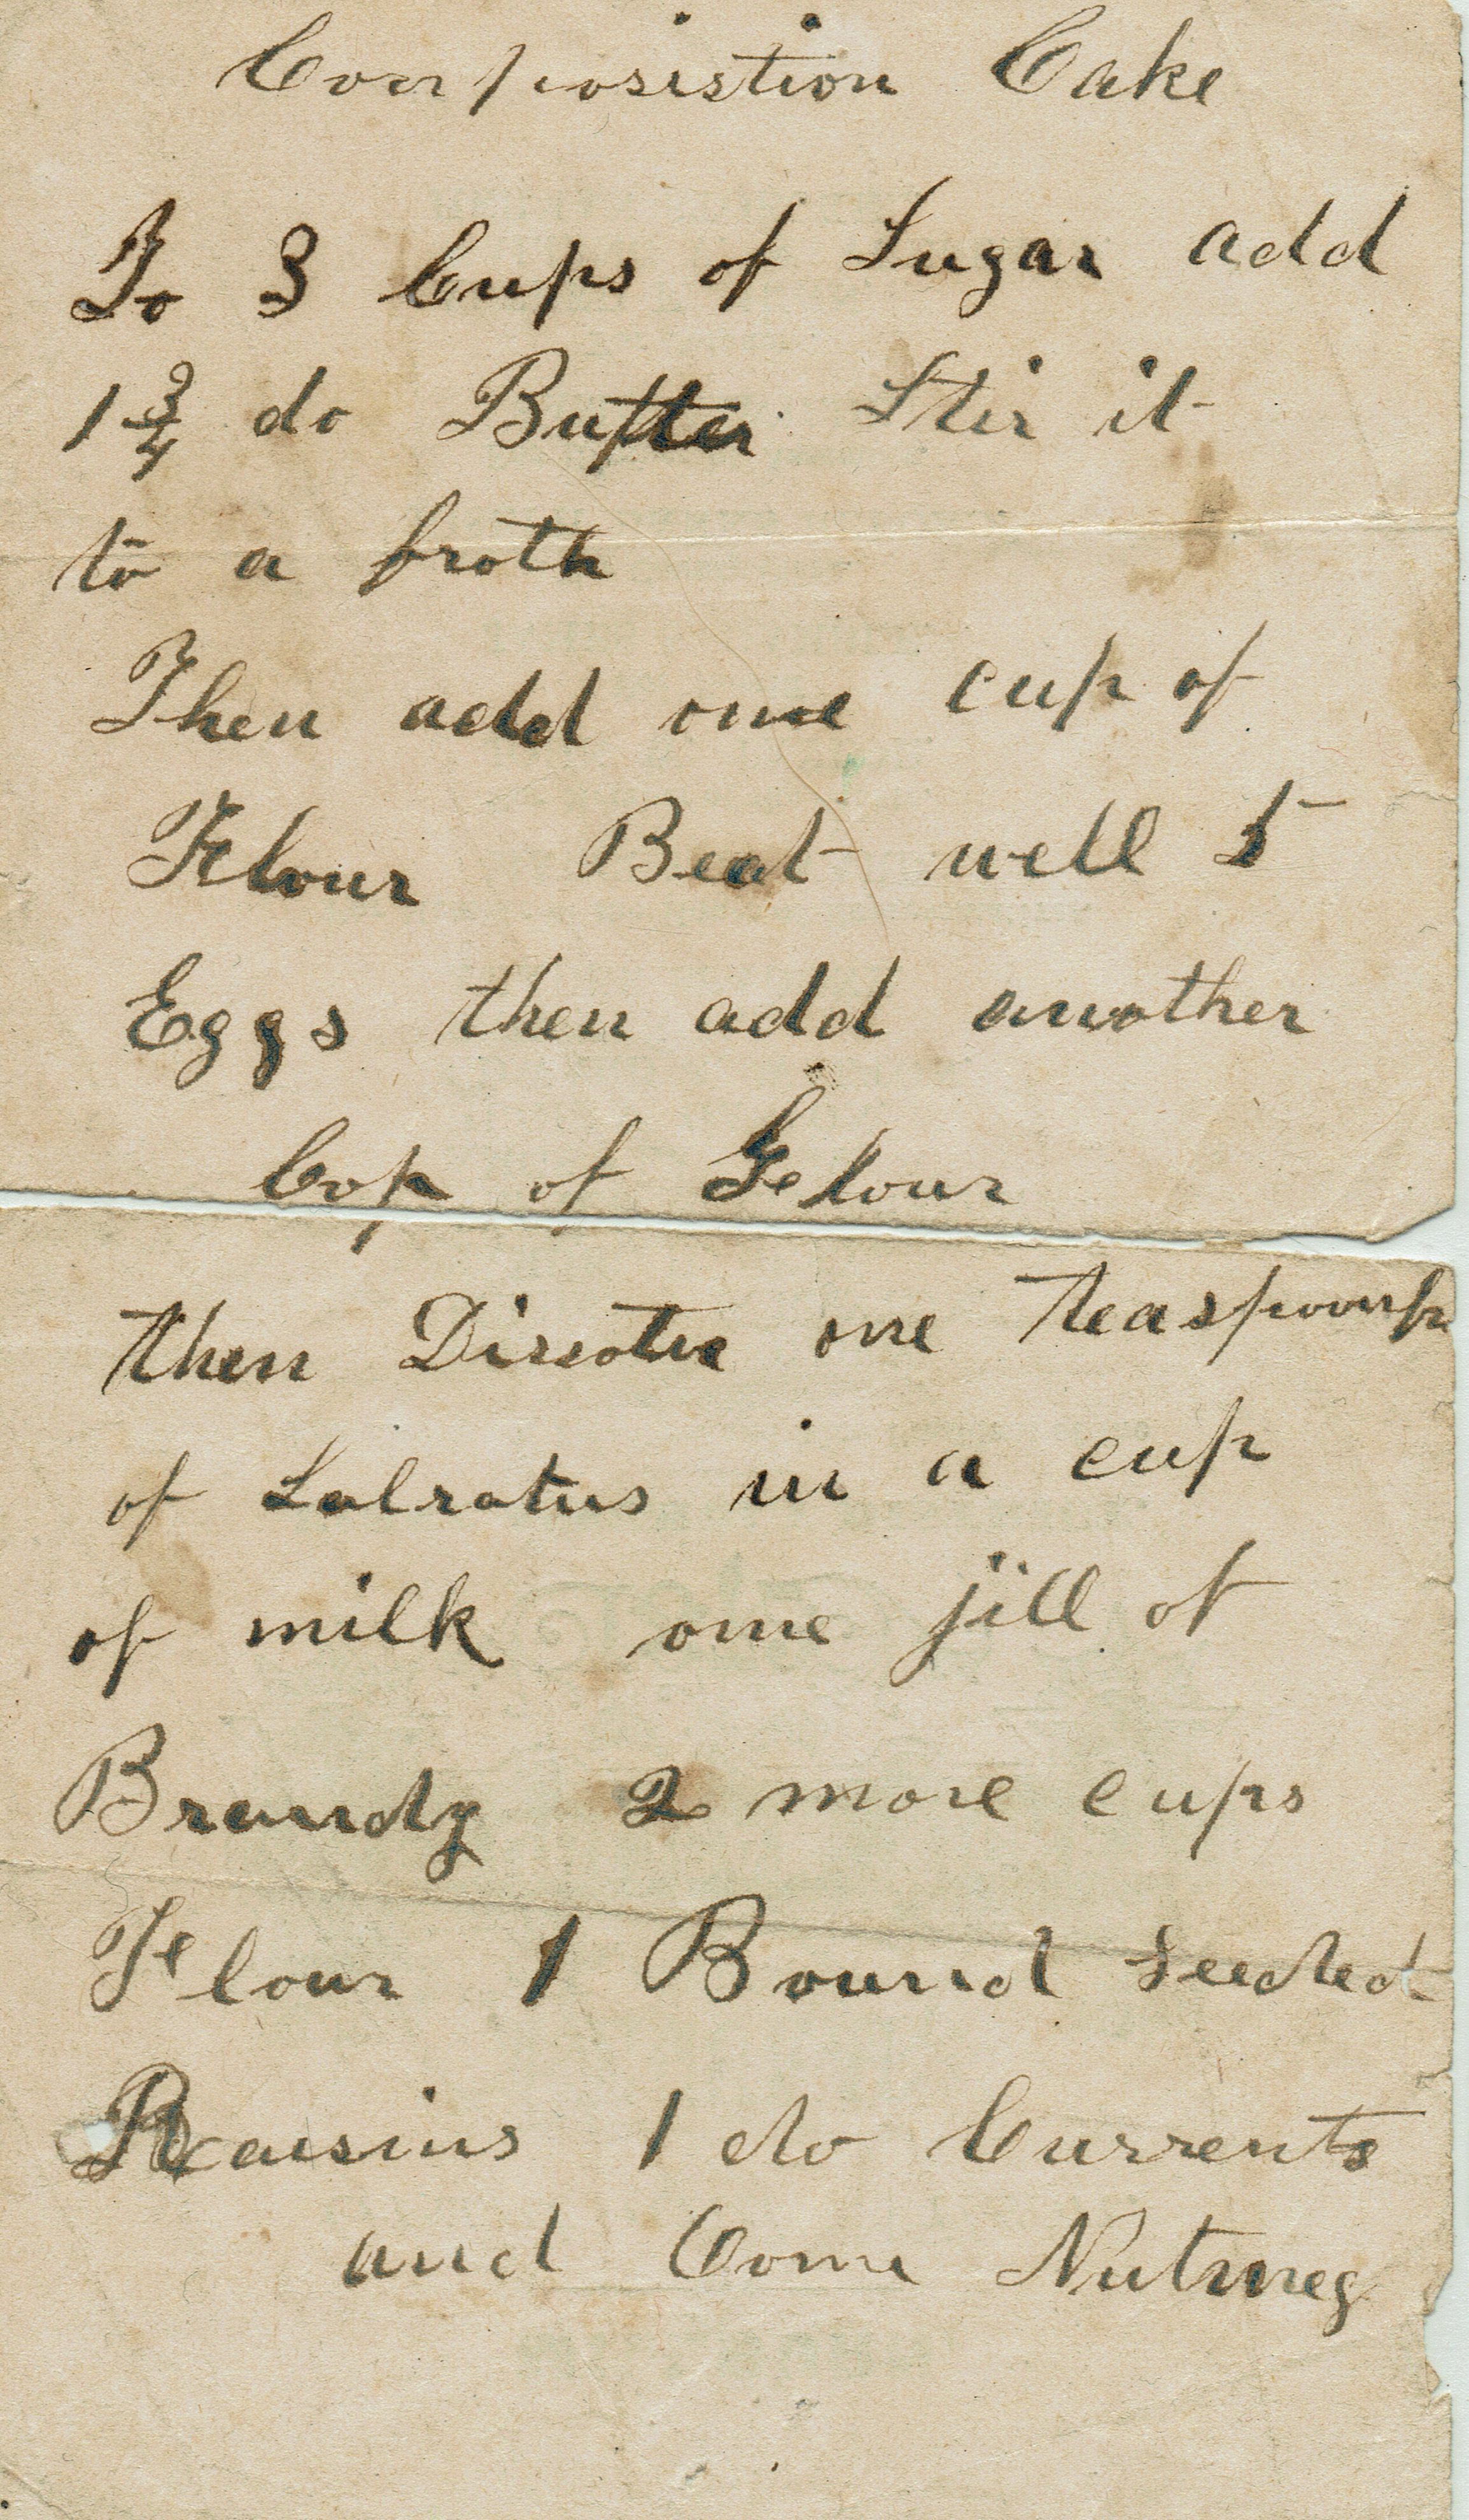 Composistion Cake
To 3 Cups of Sugar add
1 3/4 do Butter Stir it
to a froth
Then add one cup of
Flour Beat well 5
Eggs then add another
Cop of Flour
then Dissolve one teaspoonfu
of Salratus in a cup
of milk one jill of
Brandy 2 more cups
Flour 1 Bound Seeded
Raisins 1 do Currents
and Nutmeg